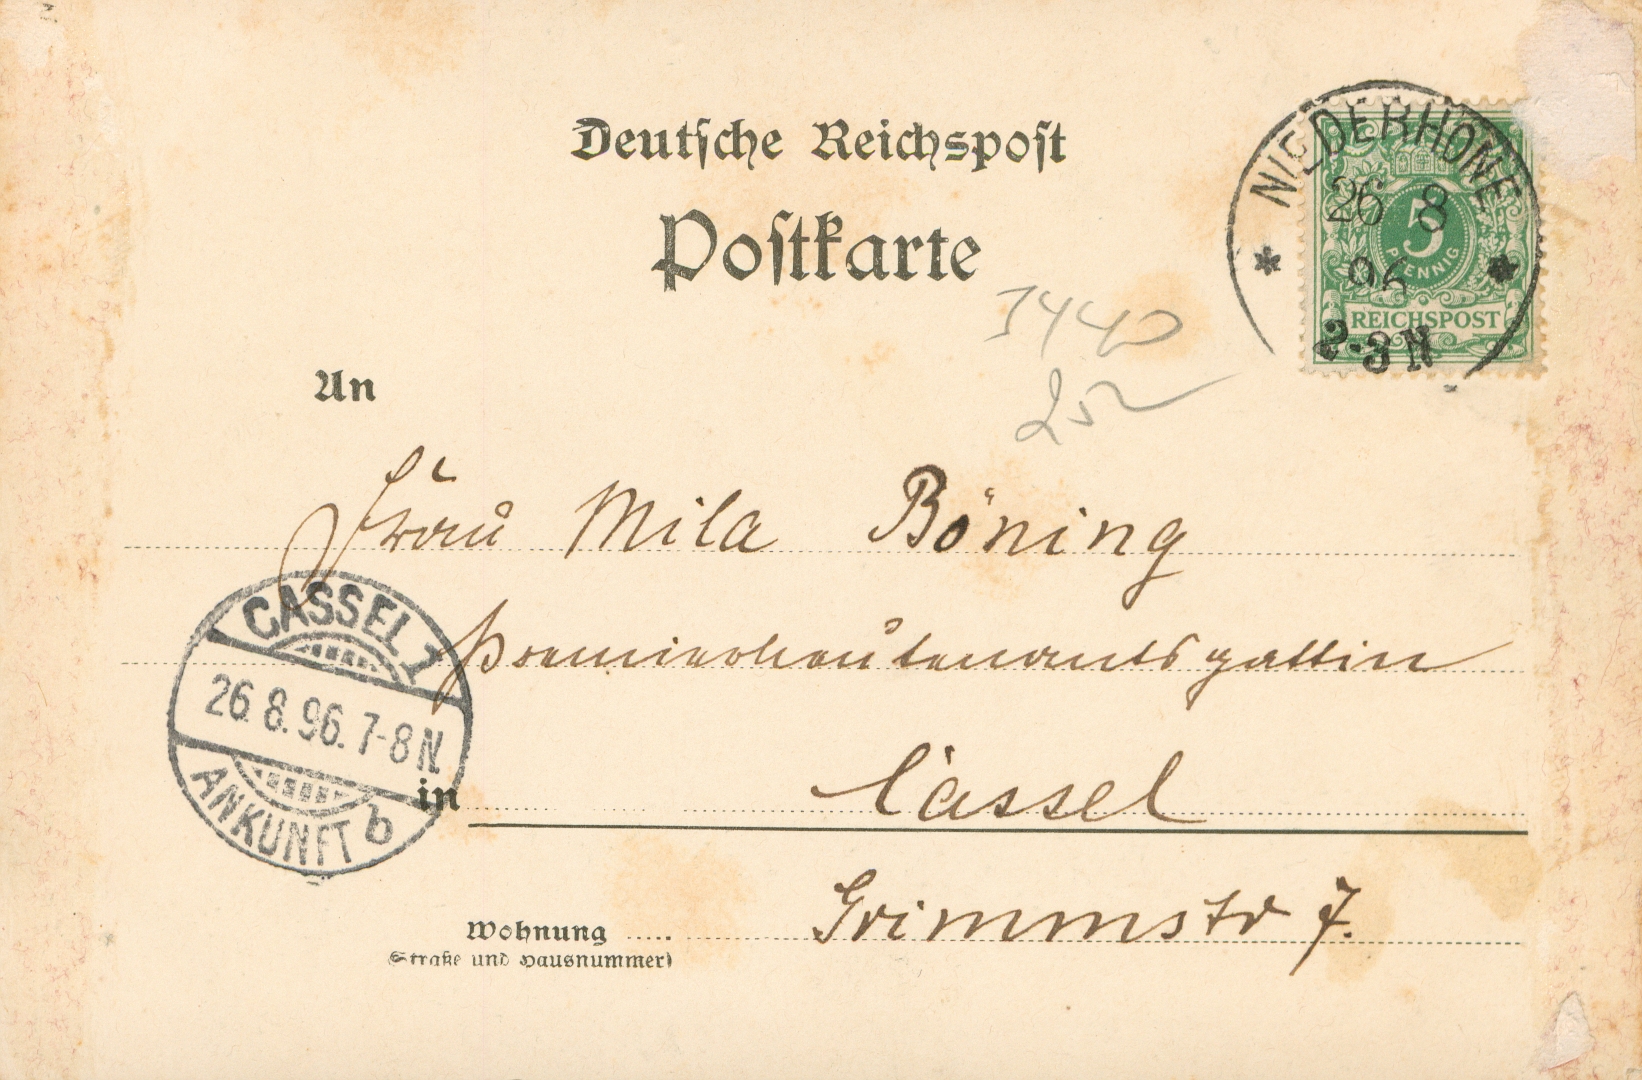 Deutsche Reichspost
Postkarte
NIEDERHONE
26 8
96
2-3N
5
PFENNIG
REICHSPOST
An
Frau Mila Böning
Premierlieutenantsgattin
CASSEL 1
26.8.96.7-8N
ANKUNFT b
in Cassel
Wohnung Grimmstr 7.
(Straße und Hausnummer)